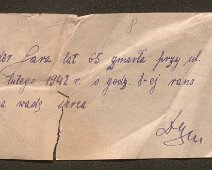 8
Sara, lat 65 zmarła przy ul.
lutego 1942 r. o godz. 8-ej rano
na wadę serca